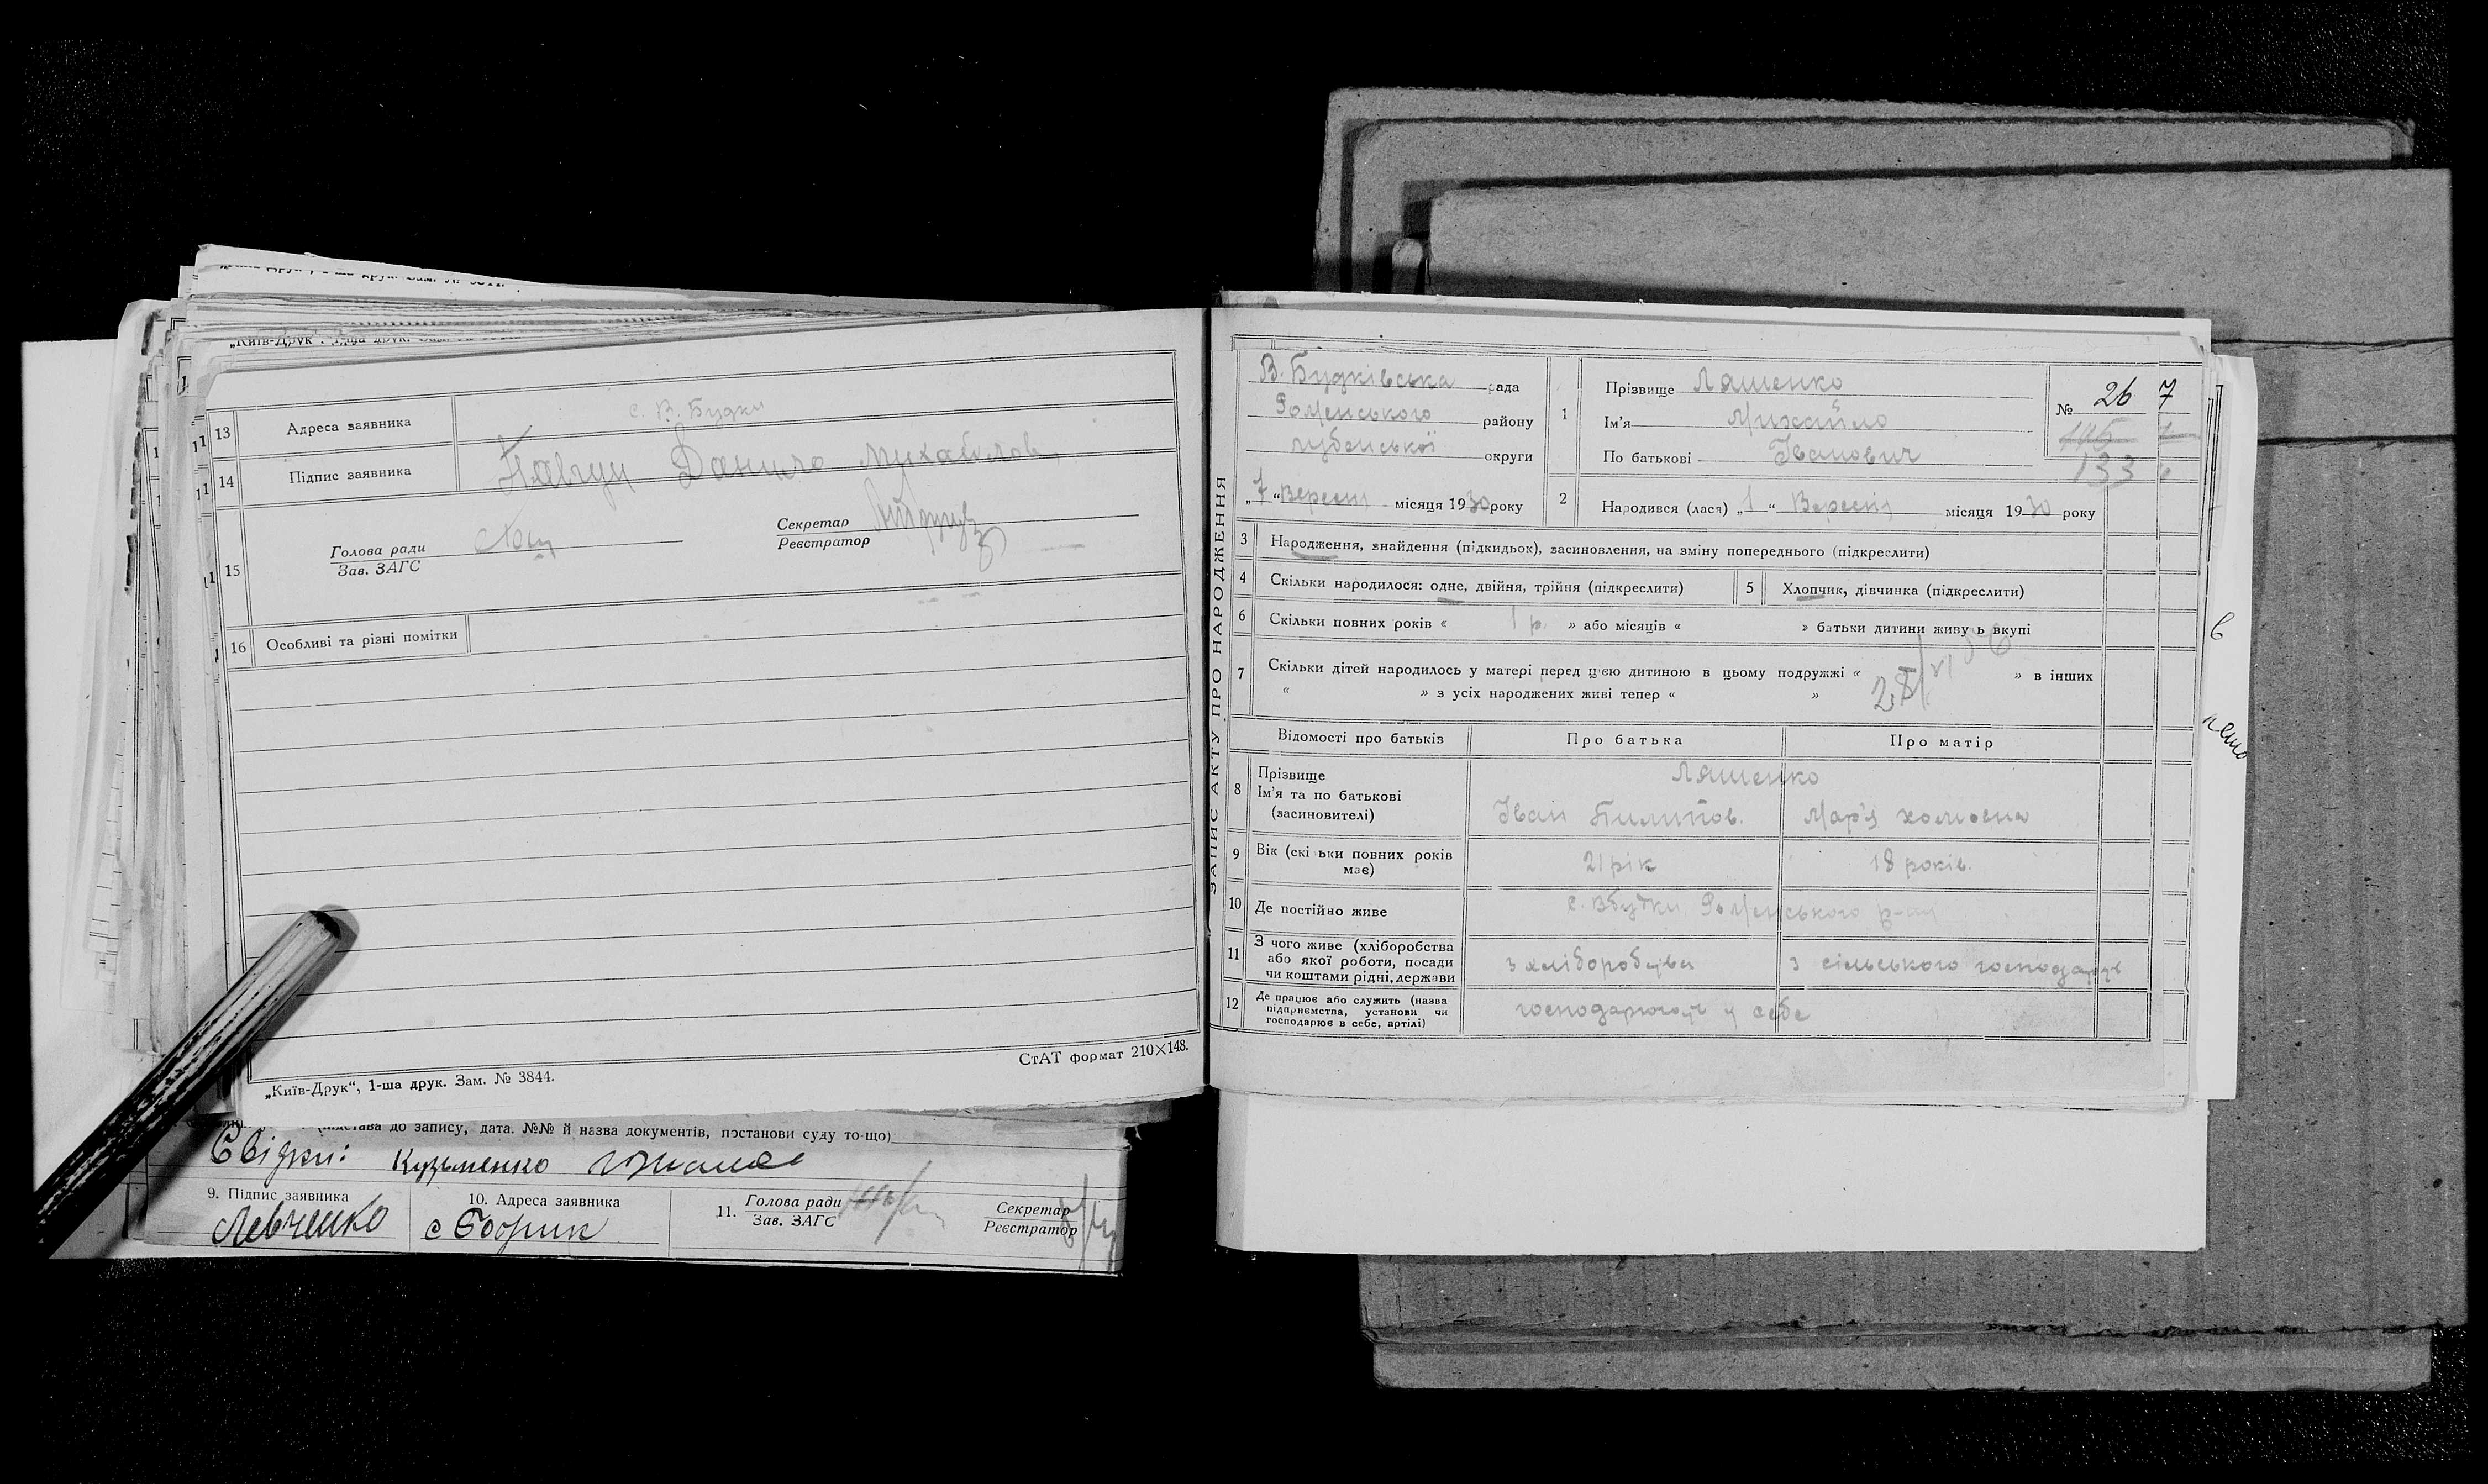 „Київ-Друк“, 1-ша друк. Зам. №
13 Адреса заявника с. В. Будки
14 Підпис заявника Данило Михайлов.
15 Голова ради
Зав. ЗАГС
Секретар
Реєстратор
16 Особливі та різні помітки
„Київ-Друк“, 1-ша друк. Зам. № 3844.
СтАТ формат 210×148.
до запису, дата. №№ й назва документів, постанови суду то-що)
Свідки: Кузьменко
9. Підпис заявника
Левченко
10. Адреса заявника
с Бобрик
11. Голова ради
Зав. ЗАГС
Секретар
Реєстратор
ЗАПИС АКТУ ПРО НАРОДЖЕННЯ
В. Будківська рада
Роменського району
Лубенської округи
„7“ Вересня місяця 1930 року
1 Прізвище Ляшенко
Ім'я Михайло
По батькові Іванович
№ 26
115
133
7
2 Народився (лася) „1“ Вересня місяця 1930 року
3 Народження, знайдення (підкидьок), засиновлення, на зміну попереднього (підкреслити)
4 Скільки народилося: одне, двійня, трійня (підкреслити)
5 Хлопчик, дівчинка (підкреслити)
6 Скільки повних років « 1 р. » або місяців « » батьки дитини живу ь вкупі
7 Скільки дітей народилось у матері перед цією дитиною в цьому подружжі « » в інших
« » з усіх народжених живі тепер « »
Відомості про батьків
Про батька
Про матір
8 Прізвище
Ім'я та по батькові
(засиновителі)
Ляшенко
Іван Пилипов.
Мар'я хомовна
9 Вік (скі ьки повних років має)
21 рік
18 років.
10 Де постійно живе
с. Вбудки Роменського р-ну
11 З чого живе (хліборобства
або якої роботи, посади
чи коштами рідні, держави
з хліборобства
з сільського господарств
12 Де працює або служить (назва
підприємства, установи чи
господарює в себе, артілі)
господарюють у себе
6